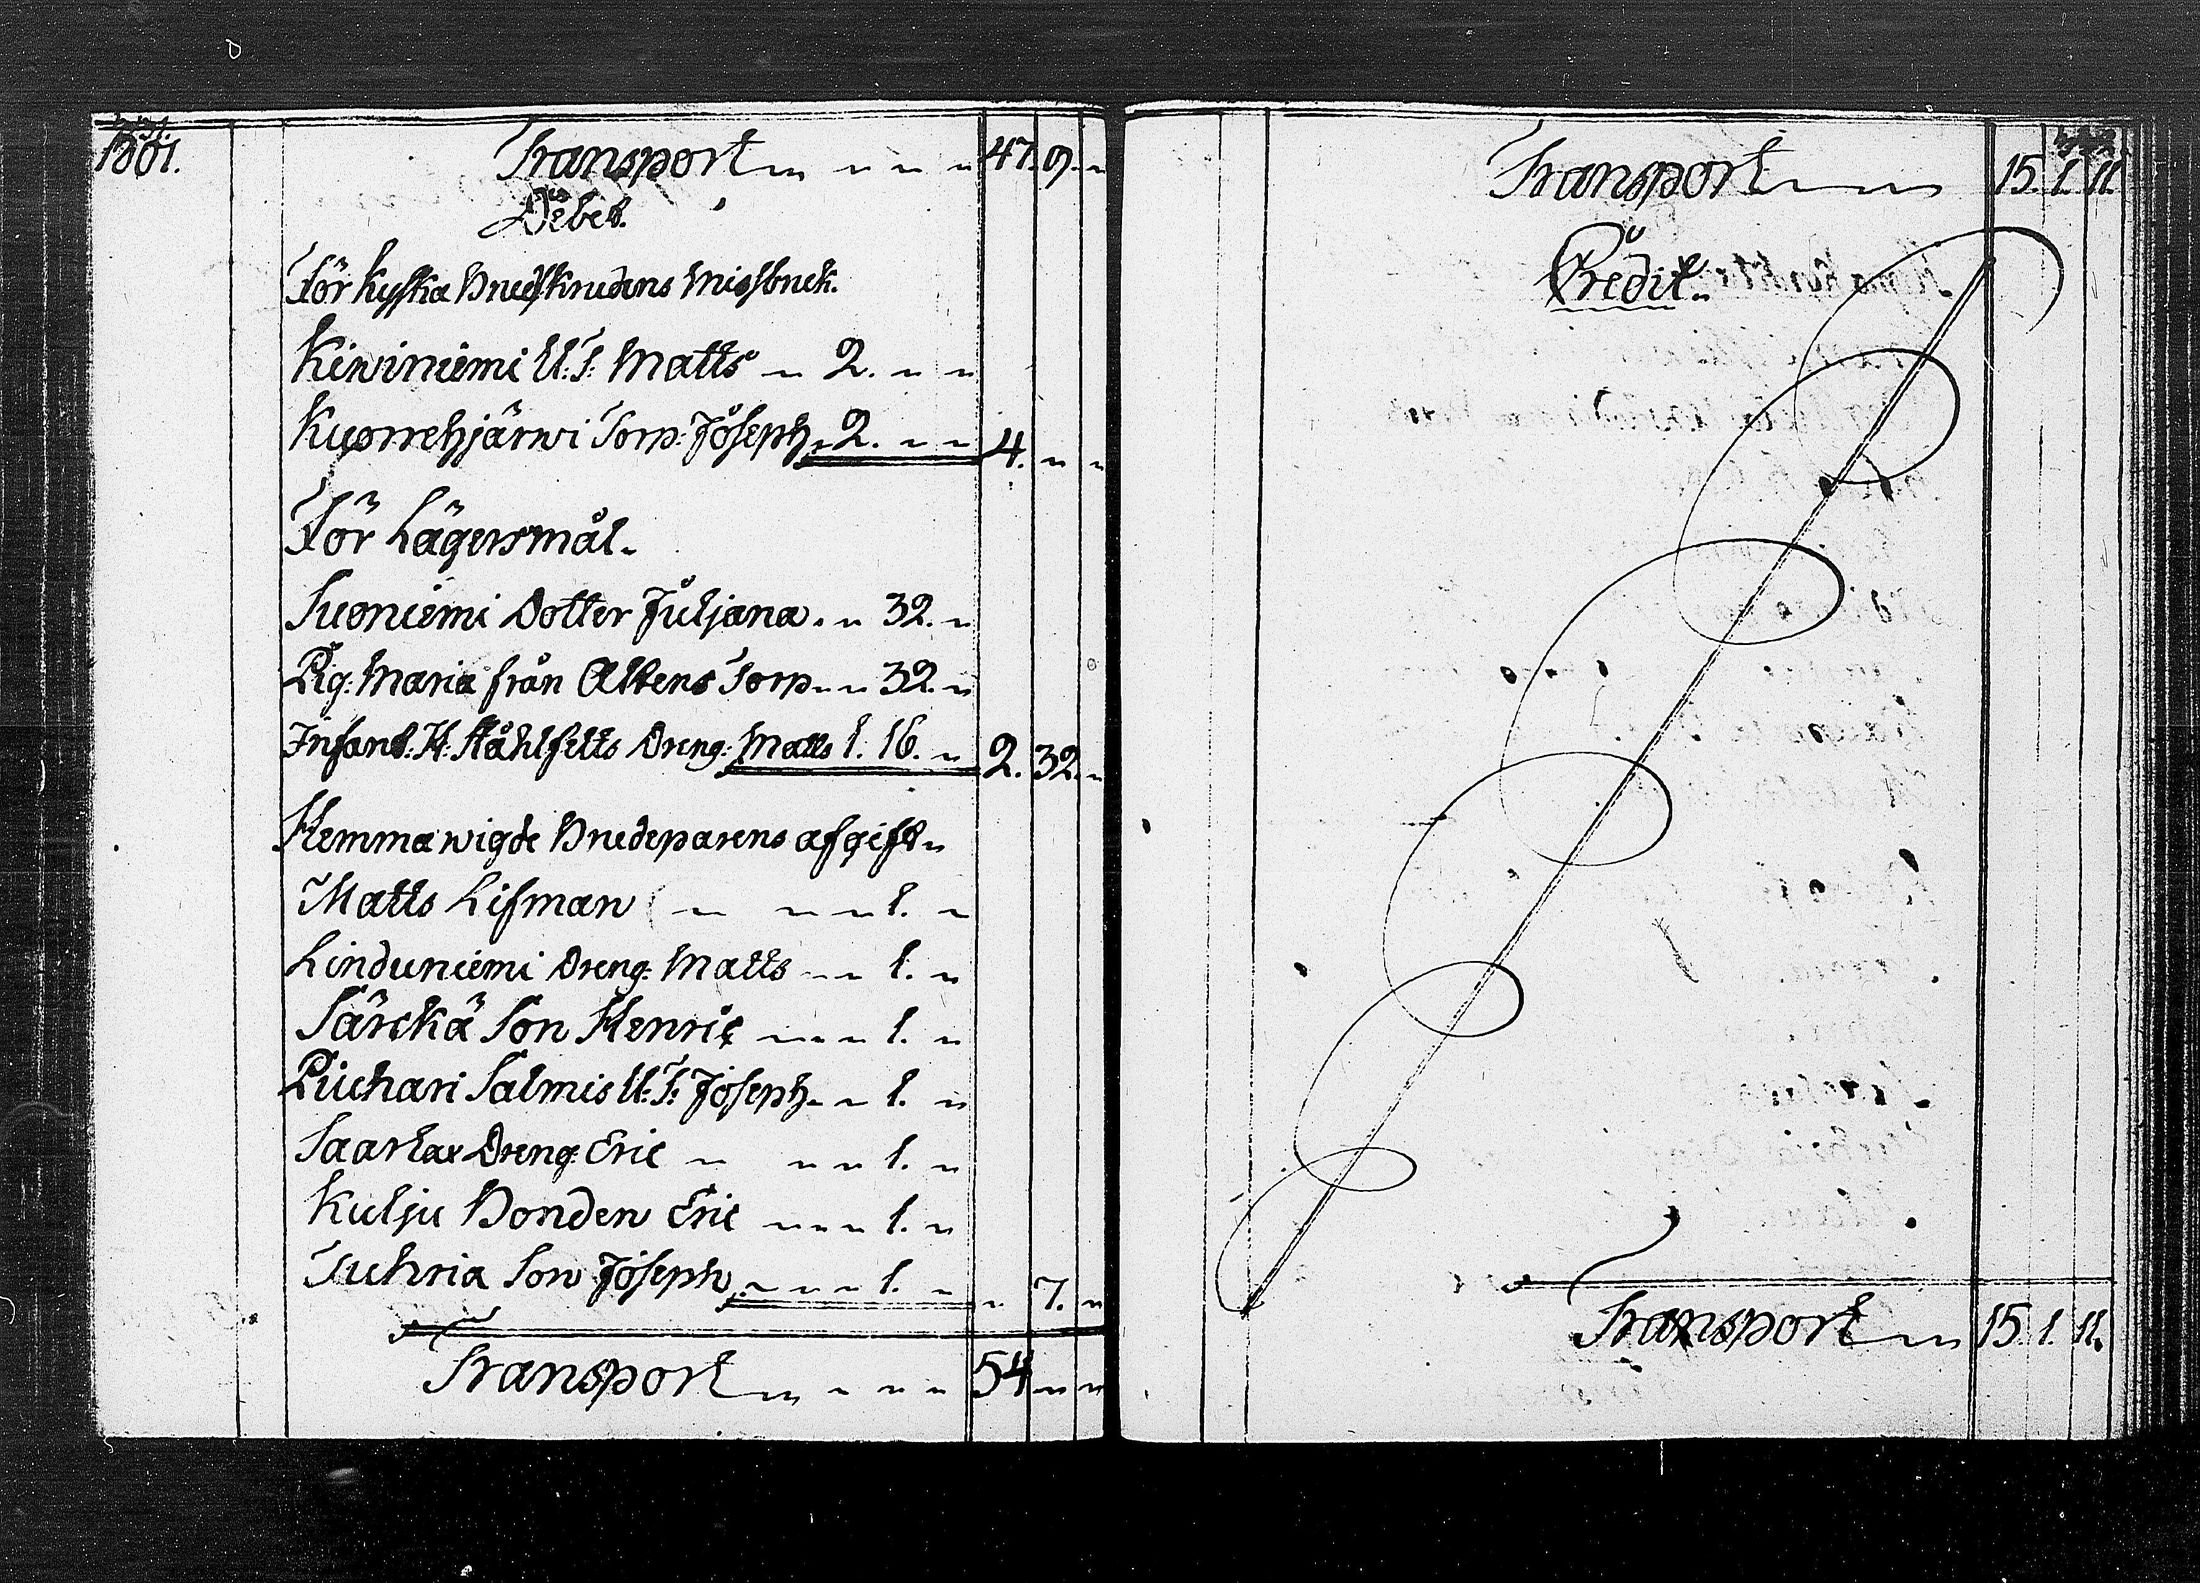 1801. Transport 47. 9. "
Debet.
För kyska Brudskrudens Missbruk.
Kiwiniemi U: S: Matts " 2. " "
Kuorrehjärwi Torp: Joseph " 2. " " 4. " "
För Lägersmål.
Suoniemi Dotter Juljana. " 32. "
Pig: Maria från Altens Torp " " 32. "
Infant: H: Ståhlfelts Dreng: Matts 1. 16. " 2. 32. "
Hemma wigde Brudeparens afgift "
Matts Lifman " " " 1. "
Linduniemi Dreng: Matts " " 1. "
Särckä Son Henric " " " 1. "
Riuhari Salmis U: S: Joseph " " 1. "
Saarlax Dreng: Eric " " " 1. "
Kulju Bonden Eric " " " 1. "
Tuhria Son Joseph " " " 1. " " 7. "
Transport " " " " 54 " "
Transport 15. 1. 11
Credit.
Transport 15. 1. 11.